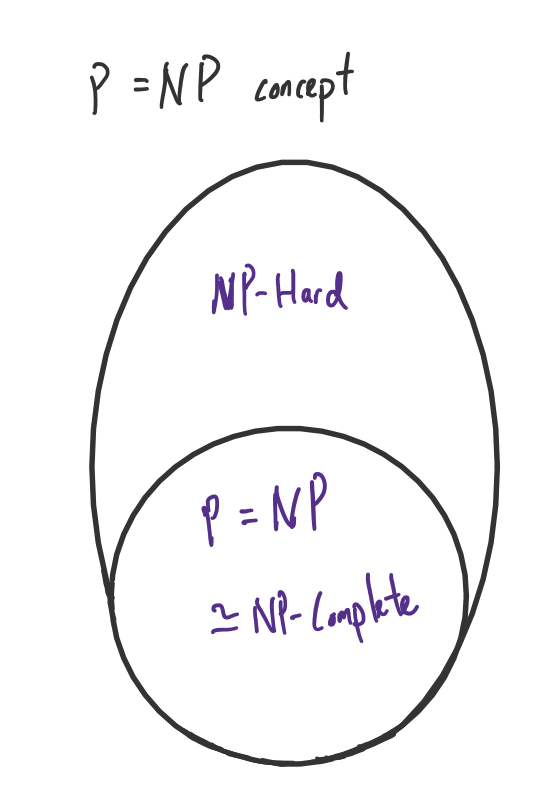 P = NP concept
NP-Hard
P = NP
≃ NP-Complete